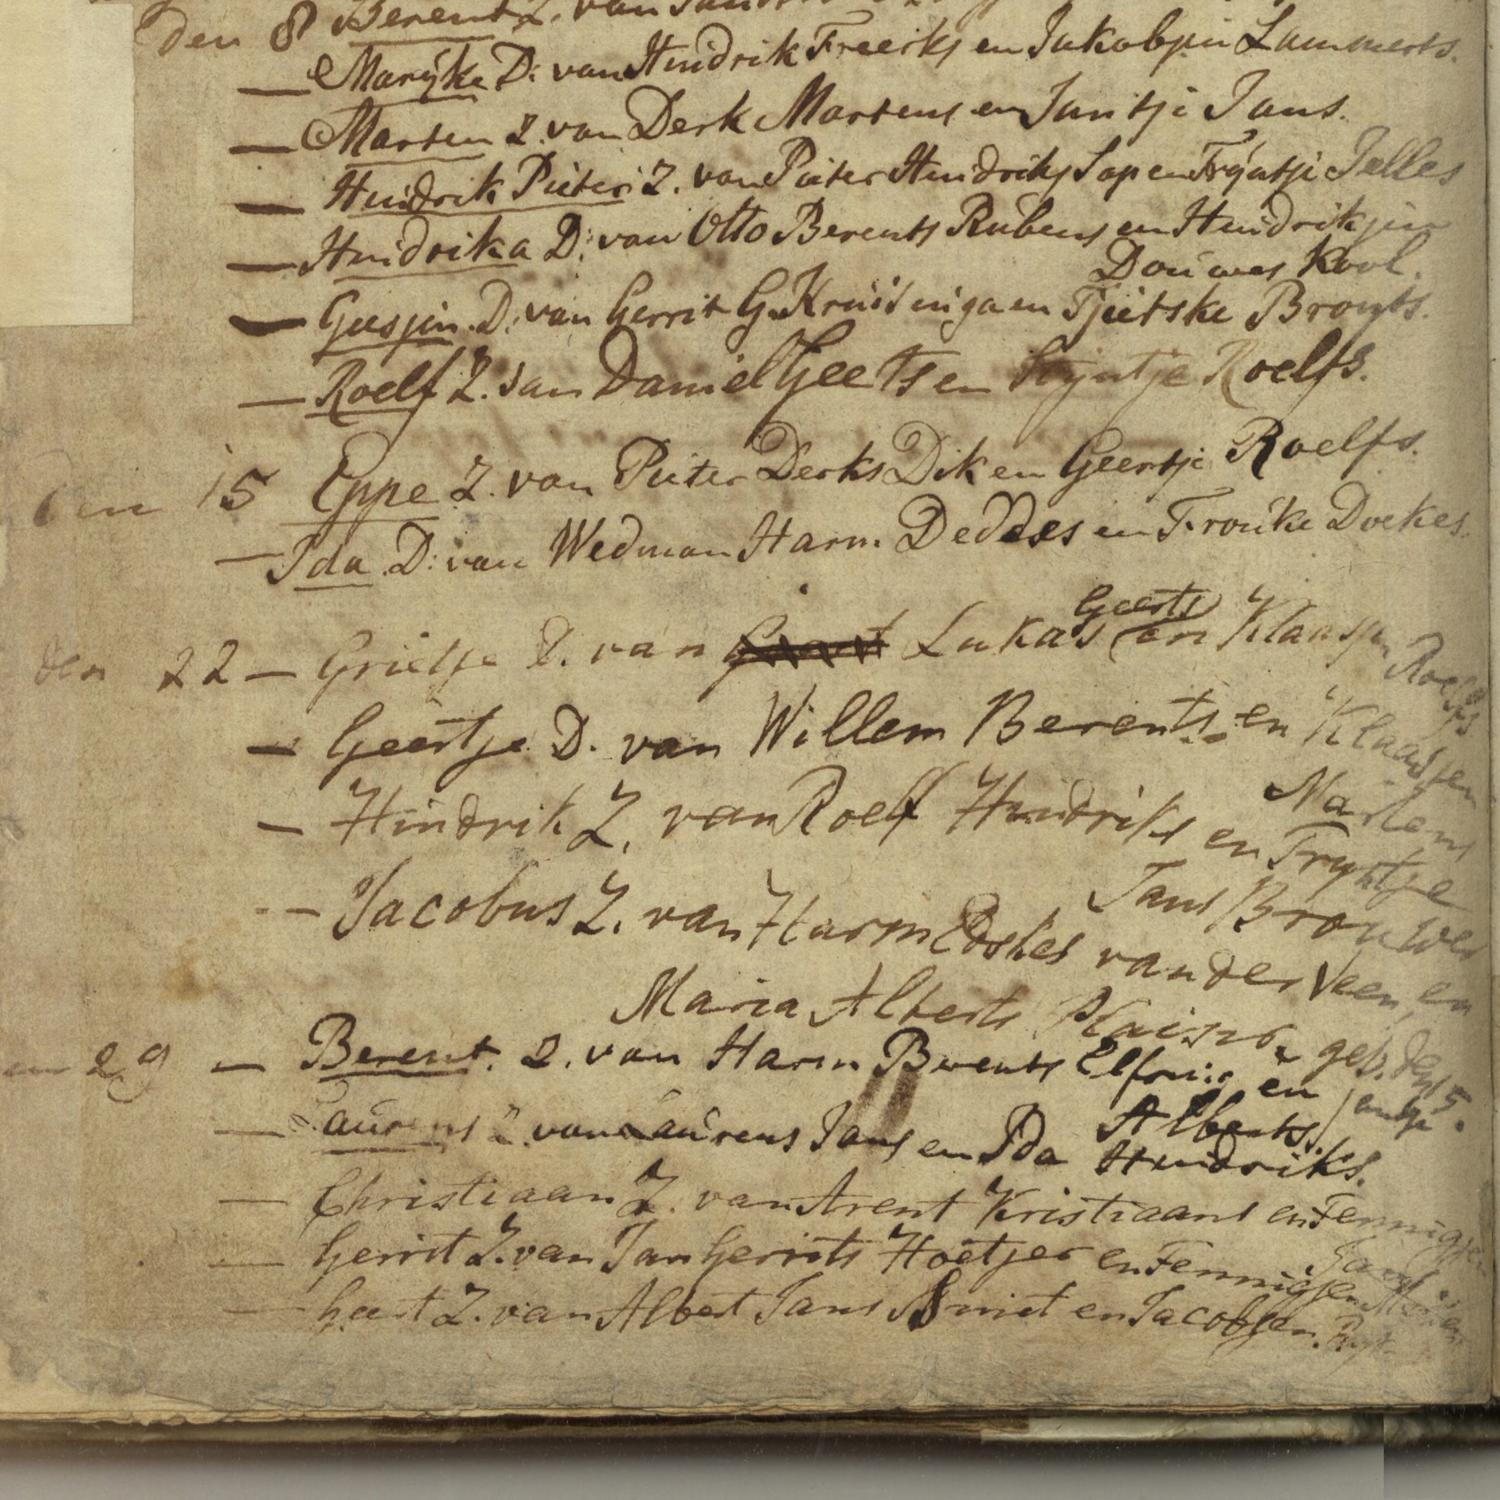 den 8 Berent Z. van
— Marijke D: van Hindrik Freerks en Jakobjen Lammerts.
— Marten Z. van Derk Martens en Jantje Jans.
— Hindrik Pieter Z. van Pieter Hindriks Sap en Trijntje Jelles
— Hindrika D: van Otto Berents Rubens en Hindrikjen
Douwes Kool.
— Geesjen D: van Gerrit G. Kruisinga en Tjietske Bronts.
— Roelf Z. van Daniel Geerts en Stijntje Roelfs.
den 15 Eppe Z. van Pieter Derks Dik en Geertje Roelfs.
— Ida D: van Wedman Harm Deddes en Frouke Doekes.
Geerts
den 22 — Grietje D. van Lukas en Klaasjen Roelfs
— Geertje D. van Willem Berents en Klaassjen
Martens
— Hindrik Z. van Roelf Hindriks en Tryntje
Jans Brouwer
— Jacobus Z. van Harm Edskes van der Veen, en
Maria Alberts geb. den 5.
en 29 — Berent Z. van Harm Berents en Jantje
Alberts.
— Laurens Z. van Laurens Jans en Ida Hindriks.
— Christiaan Z. van Arent Kristiaans en Fennigjen
— Gerrit Z. van Jan Gerrits Hoetjer en Fennigjen
— Geert Z. van Albert Jans Smit en Jacobjen